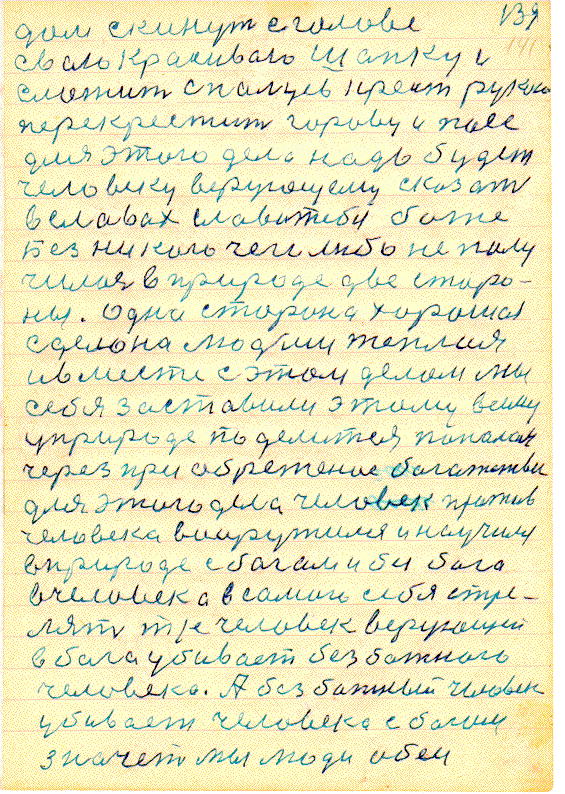 139
141
дом скинут с голове
сваю красиваю шапку и
сложит с пальцев крест рукою
перекрестит горову и
для этого дела надо будет
человеку верующему сказат
в славах слава тебе боже
Без никого чеголибо не полу
чился в природе две сторо-
ны. Одна сторона хорошая
сделона людми теплая
и в мести с этом делом мы
себя заставили этому всему
у природе поделится пополам
через приобретение багатства
для этого дела человек против
человека вооружился и научился
в природе с богам и без бога
в человека в самого себя стре-
лять т/е человек верующий
в бога убивает безбожного
человека. А безбожный человек
убивает человека с богам
значет мы люди обеи